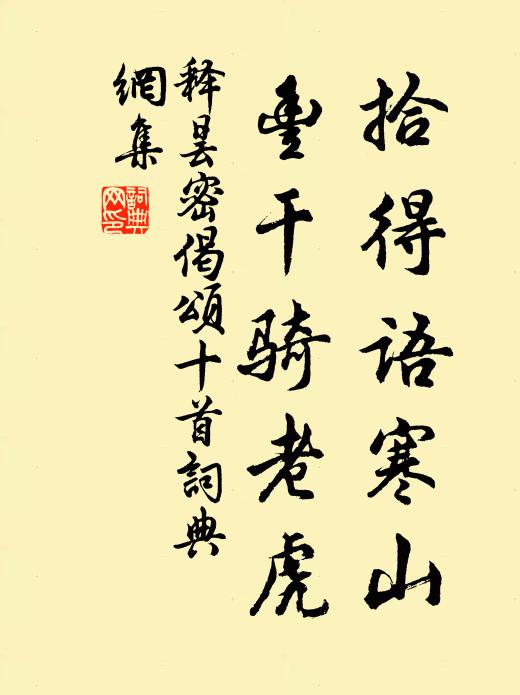 拾得语寒山
豊干骑老虎
释昙密偈頌十首詞典
網集
詞典
网印